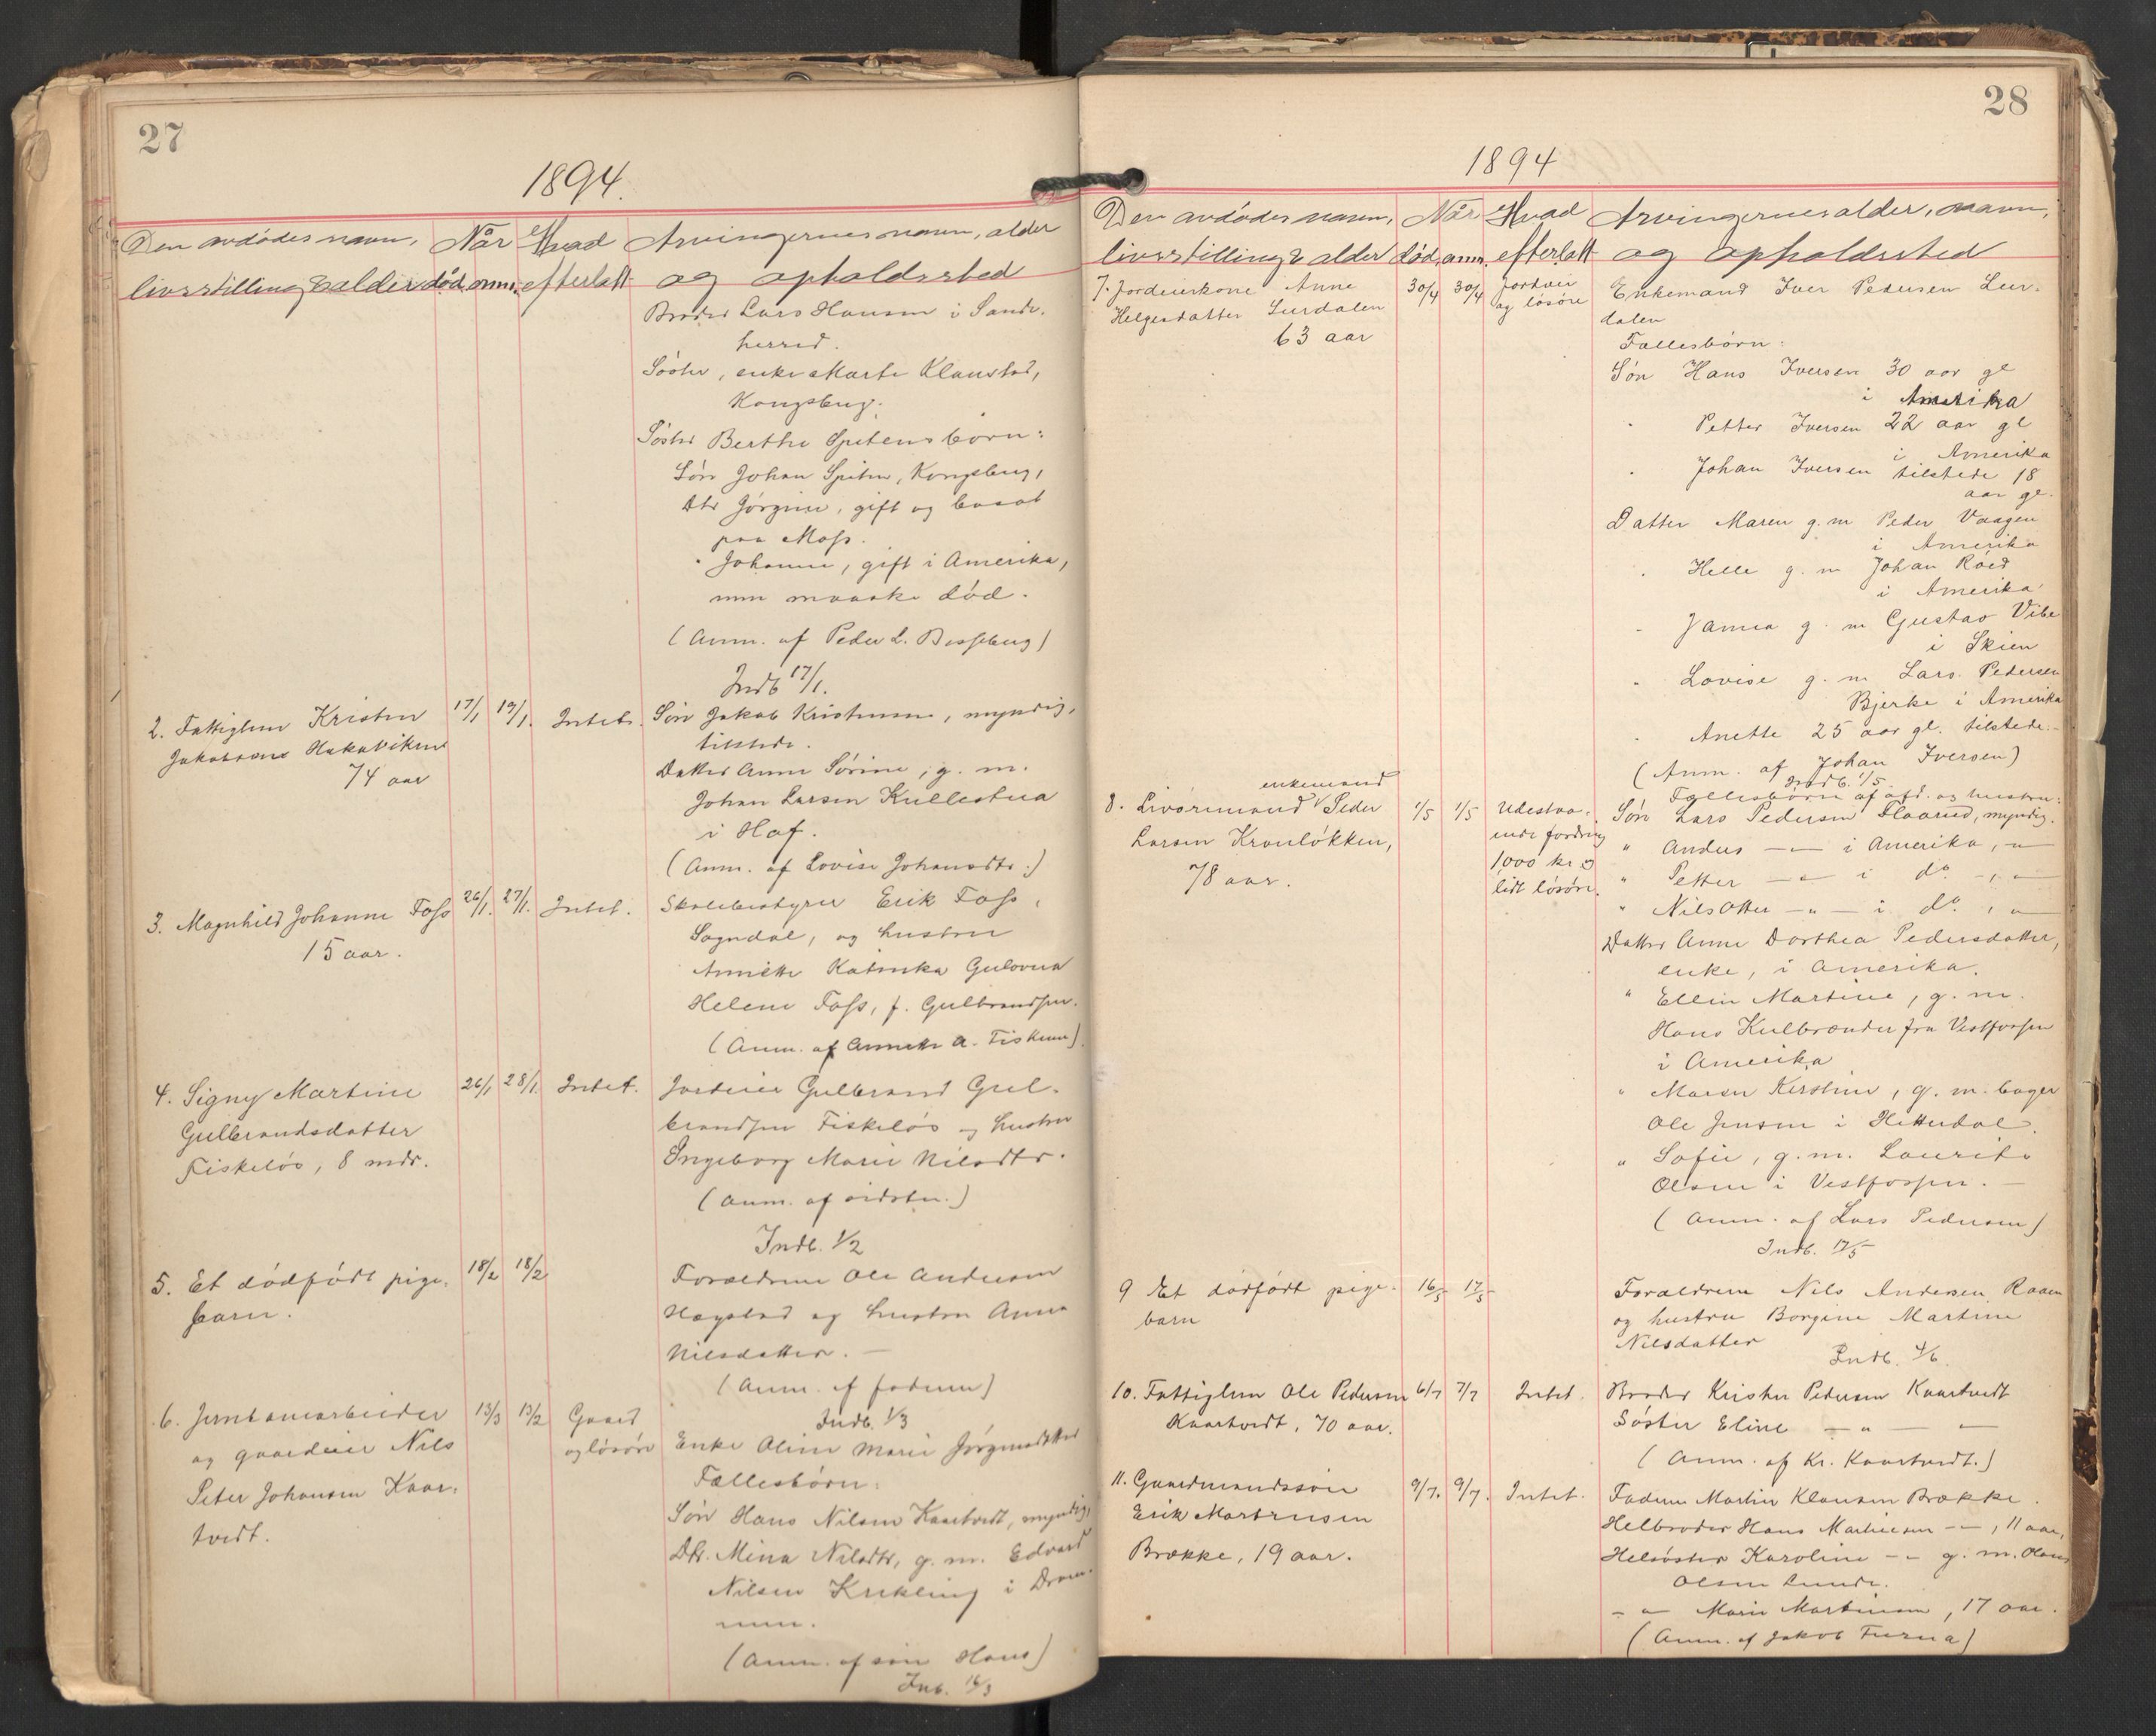 27
1894.
Den avdödes navn,
livsstilling & alder
Når
död, anm.
Hvad
efterlatt
Arvingernes navn, alder
og opholdssted
Broder Lars Hansen i Sande-
herred.
Söster, enke Marte Klaustad,
Kongsberg.
Söster Berthe Spitens börn:
Sön Johan Spiten, Kongsberg,
Dtr Jörgine, gift og bosat
paa Moss.
" Johanne, gift i Amerika,
men maaske död.
(Anm. af Peder L. Basseberg)
Indb 17/1.
2. Fattiglem Kristen
Jakobsens Hakavikens
74 aar
17/1 19/1.
Intet.
Sön Jakob Kristensen, myndig,
tilstede.
Datter Anne Sörine, g. m.
Johan Larsen Kullestua
i Hof.
(Anm. af Lovise Johansdtr.)
3. Magnhild Johanne Foss
15 aar.
26/1. 27/1.
Intet.
Skolebestyrer Erik Foss,
Sogndal, og hustru
Annette Katinka Gulovna
Helene Foss, f. Gulbrandsen.
(Anm. af Annette A. Fiskum)
4. Signy Martine
Gulbrandsdatter
Fiskelös, 8 mdr.
26/1 28/1.
Intet.
Jordeier Gulbrand Gul-
brandsen Fiskelös og hustru
Ingeborg Marie Nilsdtr.
(Anm. af sidstn.)
Indb. 1/2
5. Et dödfödt pige-
barn.
18/2 18/2
Forældrene Ole Andersen
Hagstad og hustru Anne
Nilsdatter. —
(Anm. af faderen)
Indb. 1/3
6. Jernbanearbeider
og gaardeier Nils
Peter Johansen Kaar-
tvedt.
13/3 13/2
Gaard
og lösöre
Enke Oline Marie Jörgensdatter
Fællesbörn:
Sön Hans Nilsen Kaartvedt, myndig,
Dtr. Mina Nilsdtr, g. m. Edvard
Nilsen Krekling i Dram-
men.
(Anm. af sön Hans)
Inb. 16/3
28
1894
Den avdödes navn,
livsstilling & alder
Når
död, anm.
Hvad
efterlatt
Arvingernes alder, navn,
og opholdssted
7. Jordeierkone Anne
Helgesdatter Surdalen
63 aar
30/4 30/4
Jordvei
og lösöre
Enkemand Iver Pedersen Sur-
dalen
Fællesbörn:
Sön Hans Iversen 30 aar gl
i Amerika
" Petter Iversen 22 aar gl
i Amerika
" Johan Iversen tilstede 18
aar gl.
Datter Maren g. m Peder Vaagen
i Amerika
" Helle g. m Johan Röed
i Amerika
" Janna g. m Gustav Vibe
i Skien
" Lovise g. m Lars Pedersen
Bjerke i Amerika
" Anette 25 aar gl. tilstede.
(Anm. af Johan Iversen)
Indb. 1/5
enkemand
8. Livöremand Peder
Larsen Kronlökken,
78 aar.
1/5 1/5
Udestaa-
ende fordring
1000 kr og
lidt lösöre.
Fællesbörn af afd. og hustru:
Sön Lars Pedersen Flaarud, myndig.
" Anders — " — i Amerika, "
" Petter — " — i do —, "
" Nils Otter — " — i do, "
Datter Anne Dorthea Pedersdatter,
enke, i Amerika.
" Ellin Martine, g. m.
Hans Kulbrander fra Vestfossen
i Amerika
" Maren Kirstine, g. m. bager
Ole Jensen i Hitterdal.
" Sofie, g. m. Laurits
Olsen i Vestfossen. —
(Anm. af Lars Pedersen)
Indb. 12/5
9 Et dödfödt pige-
barn
16/5 17/5
Forældrene Nils Andersen Raaen
og hustru Borgine Martine
Nilsdatter
Indb. 4/6.
10. Fattiglem Ole Pedersen
Kaartvedt, 70 aar.
6/7 7/7
Intet.
Broder Krister Pedersen Kaartvedt
Söster Eline — " — "
(Anm. af Kr. Kaartvedt.)
11. Gaardmandssön
Erik Martinsen
Brække, 19 aar.
9/7. 9/7.
Intet.
Faderen Martin Klausen Brække.
Helbroder Hans Martinsen — " —, 11 aar,
Helsöster Karoline — " g. m. Hans
Olsen Lunde.
— " — Marie Martinsen, 17 aar.
(Anm. af Jakob Furua)